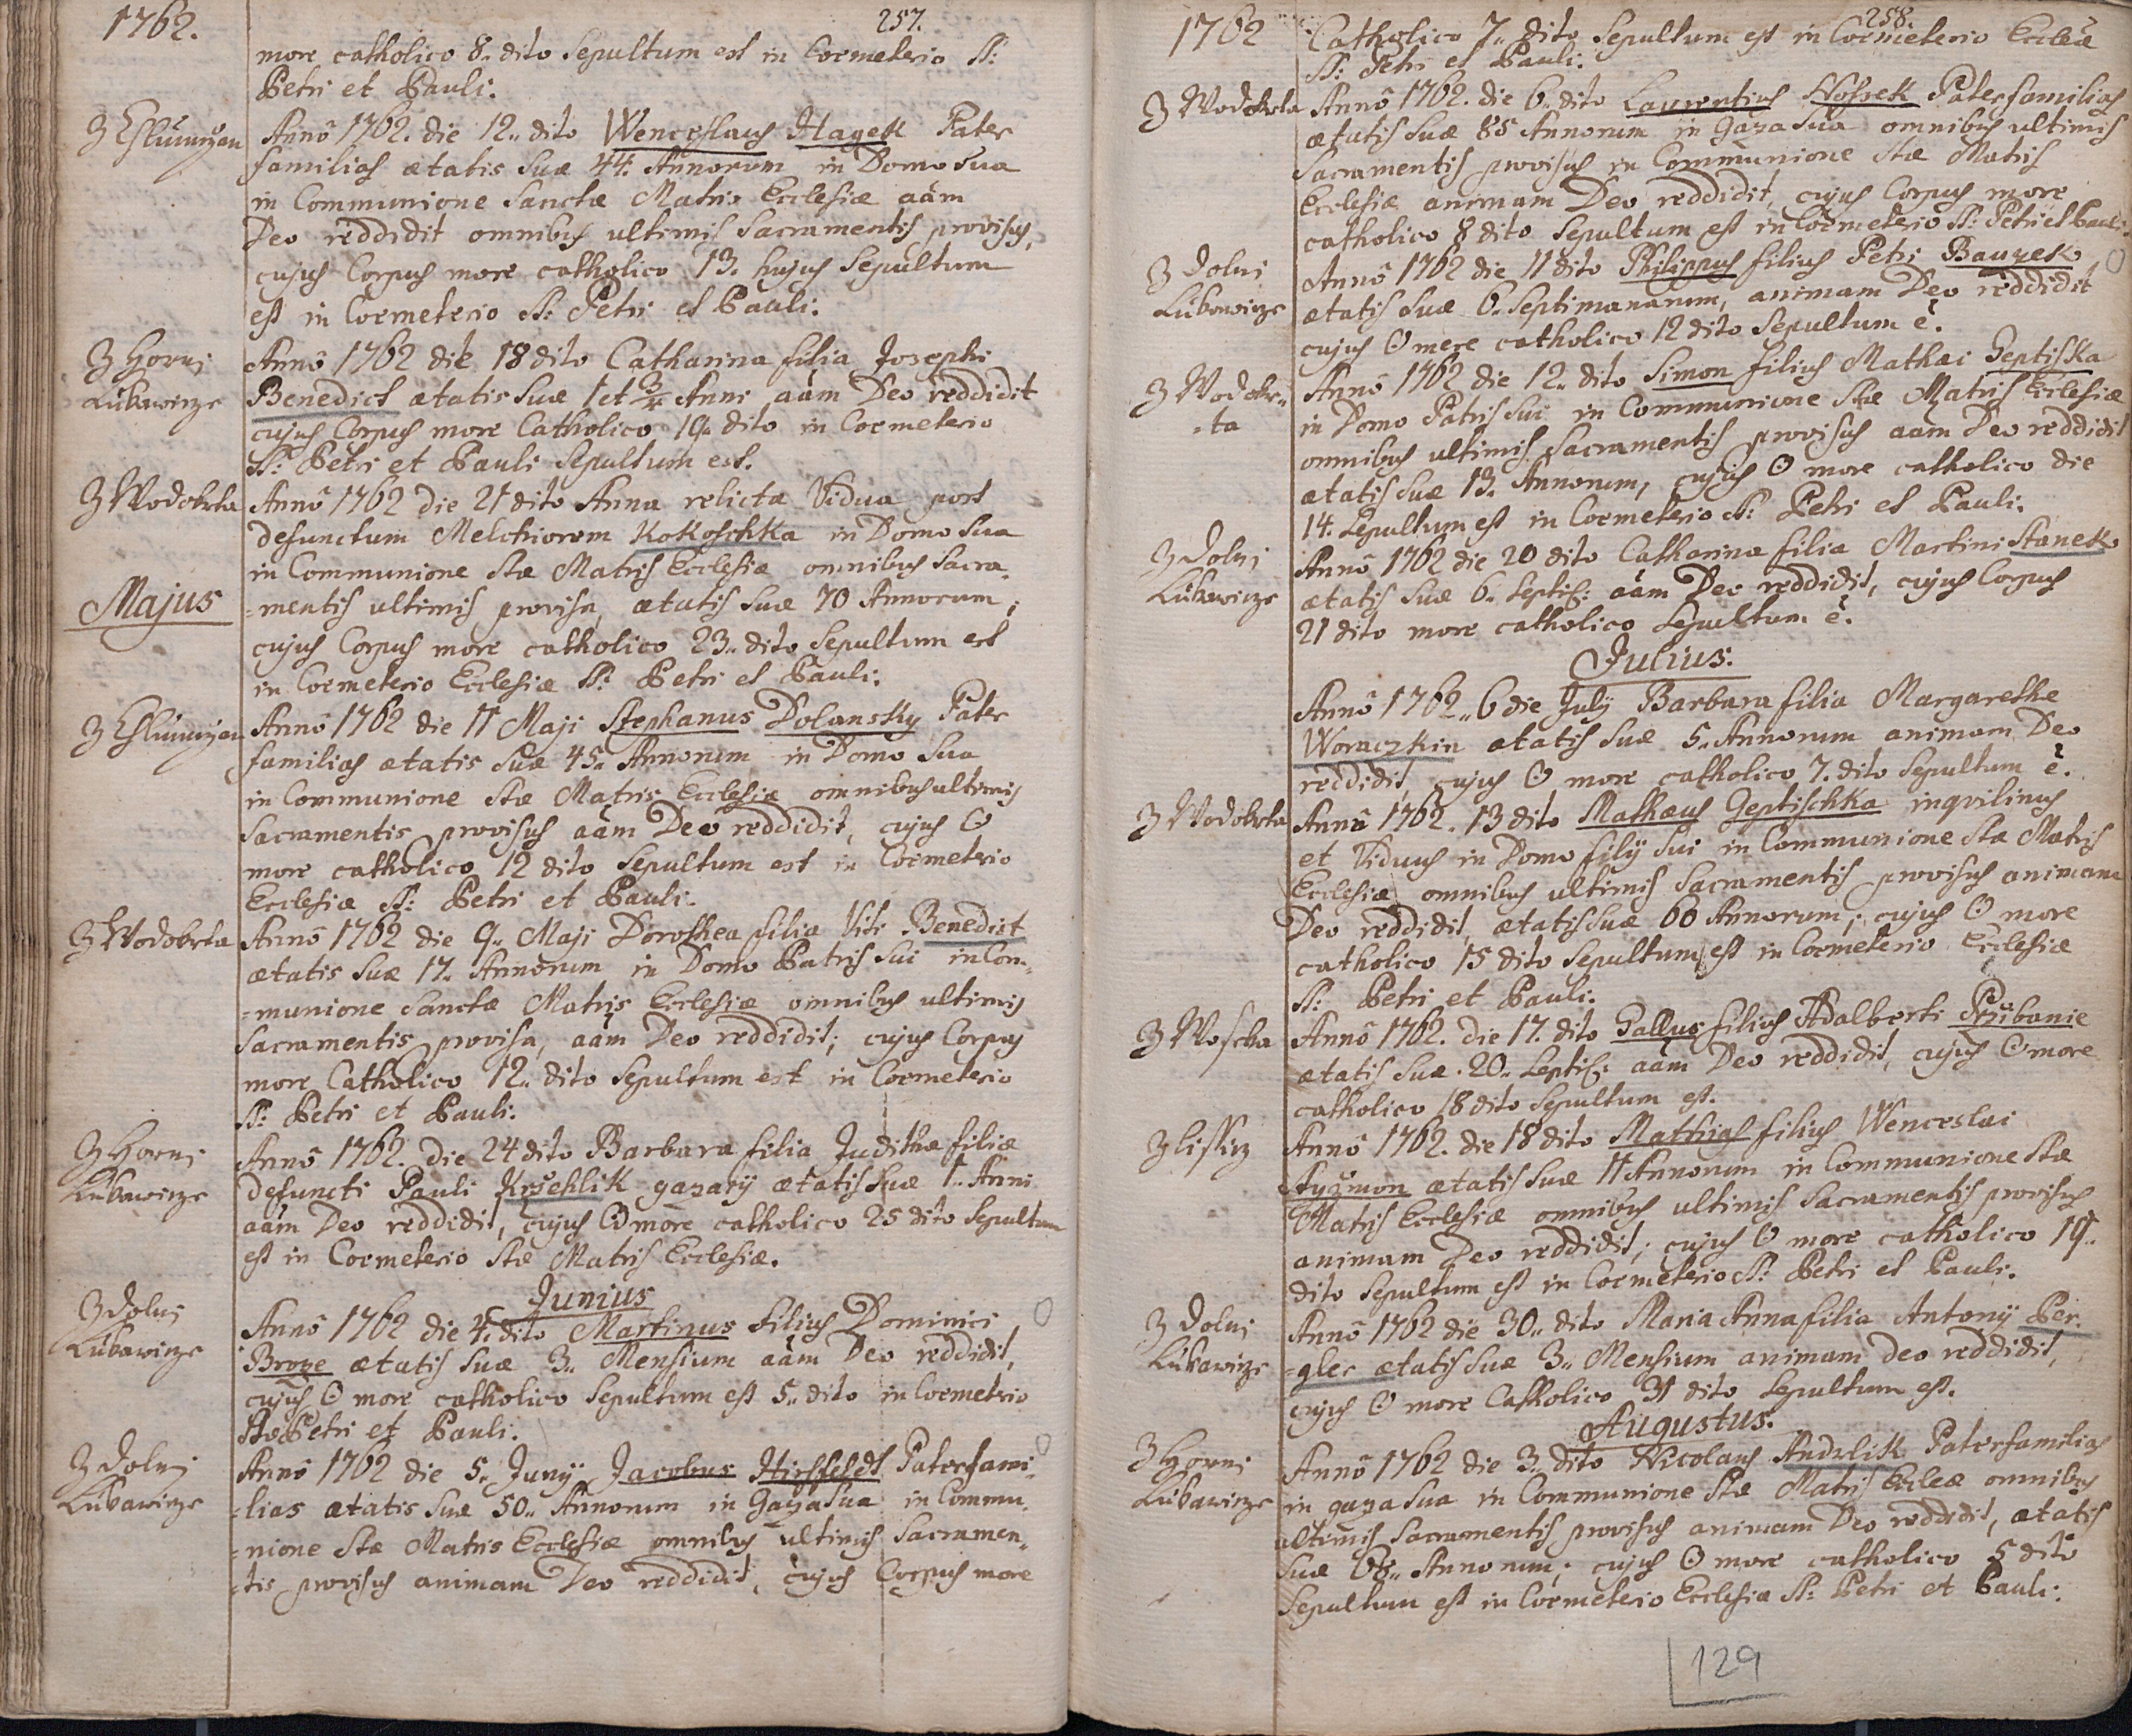 1762.
257.
more catholico 8. dito Sepultum est in Coemeterio SS:
Petri et Pauli.
Annô 1762. die 12.. dito Wenceslaus Hagek Pater
familias ætatis Suæ 44. Annorum in Domo Sua
in Communione Sanctæ Matris Ecclesiæ aãm
Deo reddidit omnibus ultimis Sacramentis provisus,
cujus Corpus more catholico 13. hujus Sepultum
est in Coemeterio SS: Petri et Pauli.
Z Horni
Lukawicze
Anno 1762 die 18 dito Catharina filia Josephi
Benedict ætatis Suæ 1 et 3/4 Anni aãm Deo reddidit
cujus Corpus more Catholico 19. dito in Coemeterio
SS: Petri et Pauli Sepultum est.
Z Wodokrta
Annô 1762 die 21 dito Anna relicta Vidua post
defunctum Melchiorem Kokoschka in Domo Sua
in Communione Stæ Matris Ecclesiæ omnibus Sacra-
Majus
=mentis ultimis provisa, ætatis Suæ 70 Annorum,
cujus Corpus more catholico 23.. dito Sepultum est
in Coemeterio Ecclesiæ SS: Petri et Pauli.
Annô 1762 die 11 Maji Stephanus Dolansky Pater
familias ætatis Suæ 45.. Annorum in Domo Sua
in Communione Stæ Matris Ecclesiæ omnibus ultimis
Sacramentis provisus aãm Deo reddidit, cujus O
more catholico 12 dito Sepultum est in Coemeterio
Ecclesiæ SS: Petri et Pauli.
Z Wodokrta
Annô 1762 die 9.. Maji Dorothea filia Viti Benedict
ætatis Suæ 17.. Annorum in Domo Patris Sui in Com-
=munione Sanctæ Matris Ecclesiæ omnibus ultimis
Sacramentis provisa, aãm Deo reddidit; cujus Corpus
more Catholico 12.. dito Sepultum est in Coemeterio
SS: Petri et Pauli.
Z Horni
Lukawicze
Annô 1762. die 24 dito Barbara filia Judithæ filiæ
defuncti Pauli Krzehlik gazarij ætatis Suæ 1.. Anni
aãm Deo reddidit, cujus O more catholico 25 dito Sepultum
est in Coemeterio Stæ Matris Ecclesiæ.
Junius
Z Dolni
Lukawicze
Annô 1762 die 4. dito Martinus filius Dominici
Broze ætatis Suæ 3.. Mensium aãm Deo reddidit,
cujus O more catholico Sepultum est 5.. dito in Coemeterio
Petri et Pauli.
Z Dolni
Lukawicze
Annô 1762 die 5.. Junij Jacobus Hirsfeldt Paterfami-
=lias ætatis Suæ 50.. Annorum in Gaza Sua in Commu-
=nione Stæ Matris Ecclesiæ omnibus ultimis Sacramen-
=tis provisus animam Deo reddidit, cujus Corpus more
1762
258.
Catholico 7.. dito Sepultum est in Coemeterio Eccleæ
SS: Petri et Pauli.
Z Wodokrta
Annô 1762. die 6.. dito Laurentius Nossek Paterfamilias
ætatis Suæ 85 Annorum in Gaza Sua omnibus ultimis
Sacramentis provisus in Communione Stæ Matris
Ecclesiæ animam Deo reddidit, cujus Corpus more
catholico 8 dito Sepultum est in Coemeterio SS: Petri et Pauli.
Z Dolni
Lukawicze
Annô 1762 die 11 dito Philippus filius Petri Bauzek
ætatis Suæ 6.. Septimanarum, animam Deo reddidit
cujus O more catholico 12 dito Sepultum ẽ.
Z Wodokr-
-ta
Annô 1762 die 12.. dito Simon filius Mathæi Geptiska
in Domo Patris Sui in Communione Stæ Matris Ecclesiæ
omnibus ultimis Sacramentis provisus aãm Deo reddidit
ætatis Suæ 13. Annorum, cujus O more catholico die
14. Sepultum est in Coemeterio SS: Petri et Pauli.
Z Dolni
Lukawicze
Annô 1762 die 20 dito Catharina filia Martini Stanek
ætatis Suæ 6.. Septis: aãm Deo reddidit, cujus Corpus
21 dito more catholico Sepultum ẽ.
Julius.
Annô 1762.. 6 die July Barbara filia Margarethe
Woraczkin ætatis Suæ 5.. Annorum animam Deo
reddidit, cujus O more catholico 7. dito Sepultum ẽ.
Z Wodokrta
Annô 1762. 13 dito Mathæus Geptischka inqvilinus
et Viduus in Domo filij Sui in Communione Stæ Matris
Ecclesiæ omnibus ultimis Sacramentis provisus animam
Deo reddidit, ætatis Suæ 60 Annorum; cujus O more
catholico 15 dito Sepultum est in Coemeterio Ecclesiæ
SS: Petri et Pauli.
Annô 1762. die 17. dito Gallus filius Adalberti Przibanie
ætatis Suæ 20.. Septis: aãm Deo reddidit, cujus O more
catholico 18 dito Sepultum est.
Z Lissiz
Annô 1762. die 18 dito Mathias filius Wenceslai
ætatis Suæ 11 Annorum in Communione Stæ
Matris Ecclesiæ omnibus ultimis Sacramentis provisus
animam Deo reddidit; cujus O more catholico 19..
dito Sepultum est in Coemeterio SS: Petri et Pauli.
Z Dolni
Lukawicze
Annô 1762 die 30.. dito Maria Anna filia Antonij Per-
=gler ætatis Suæ 3.. Mensium animam deo reddidit,
cujus O more Catholico 31 dito Sepultum est.
Augustus.
Z Horni
Lukawicze
Annô 1762 die 3.. dito Nicolaus Andrlik Paterfamilias
in gaza Sua in Communione Stæ Matris Eccleæ omnibus
ultimis Sacramentis provisus animam Deo reddidit, ætatis
Suæ 68.. Annorum; cujus O more catholico 5 dito
Sepultum est in Coemeterio Ecclesiæ SS: Petri et Pauli.
129